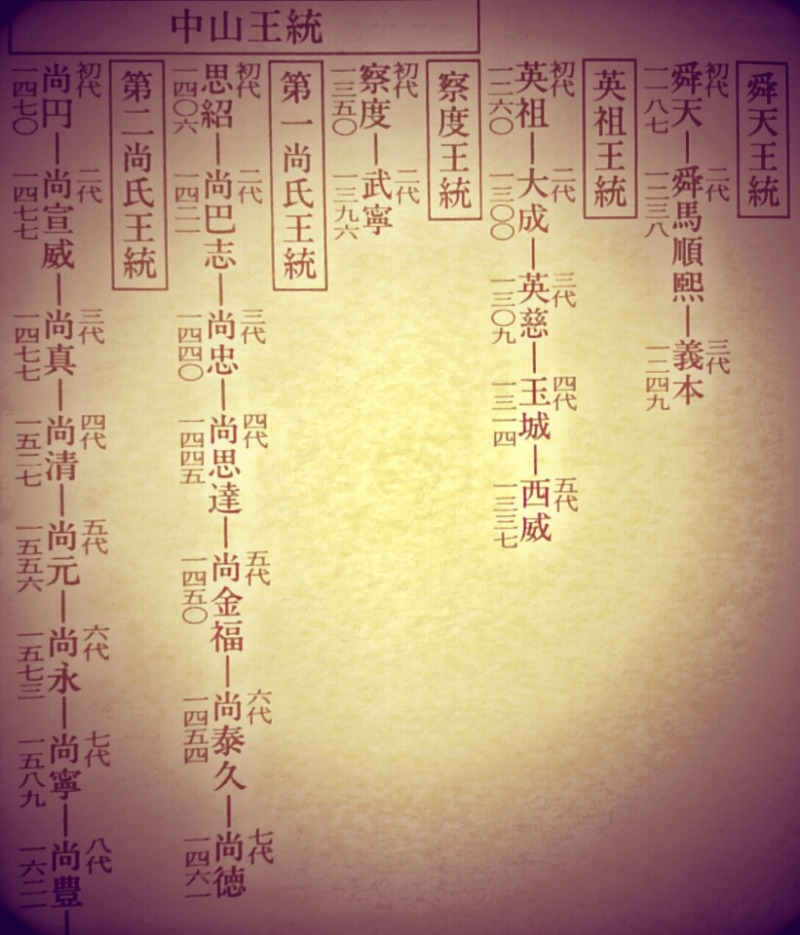 中山王統
舜天王統
初代 二代 三代
舜天―舜馬順熙―義本
一一八七 一二三八 一二四九
英祖王統
初代 二代 三代 四代 五代
英祖―大成―英慈―玉城―西威
一二六〇 一三〇〇 一三〇九 一三一四 一三三七
察度王統
初代 二代
察度―武寧
一三五〇 一三九六
第一尚氏王統
初代 二代 三代 四代 五代 六代 七代
思紹―尚巴志―尚忠―尚思達―尚金福―尚泰久―尚徳
一四〇六 一四二二 一四四〇 一四四五 一四五〇 一四五四 一四六一
第二尚氏王統
初代 二代 三代 四代 五代 六代 七代 八代
尚円―尚宣威―尚真―尚清―尚元―尚永―尚寧―尚豊―
一四七〇 一四七七 一四七七 一五二七 一五五六 一五七三 一五八九 一六二一